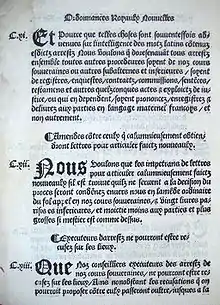 Ordonnances Royaulx Nouvelles
C.xi. Et Pource que telles choses sont souventesfois ad-
venues sur lintelligence des motz latins contenuz
esdictz arrestz. Nous voulons q̃ doresenavãt tous arrestz
ensemble toutes autres procedures soyent de noz cours
souveraines ou autres subalternes et inferieures, soyent
de registres, enquestes, contractz, commissions, sentẽces,
testamens et autres quelzconques actes & exploictz de iusti-
ce, ou qui en dependent, soyent prononcez, enregistrez &
delivrez aux parties en langage maternel françoys, et
non autrement.
Amendes cõtre ceulx q̃ calumnieusement obtien-
dront lettres pour articuler faictz nouveaulx.
C.xii. Nous Voulons que les impetrans de lettres
pour articuler calumnieusement faictz
nouveaulx sil est trouve quilz ne servent a la decision du
proces seront condãnez envers nous en lamẽde ordinaire
du fol ap̃, et en noz cours souveraines, & vingt livres pari-
sis es inferieures, et moitie moins aux parties et plus
grosses si mestier est comme dessus.
Executeurs darrestz ne pourront estre re-
cusez sur les lieux.
C.xiii. Que Noz conseilliers executeurs des arrestz de
noz cours souveraines, ne pourront estre re-
cusez sur les lieux. Ains nonobstant les recusations q̃ on
pourroit proposer cõtre eulx passeront oultre, iusques a la